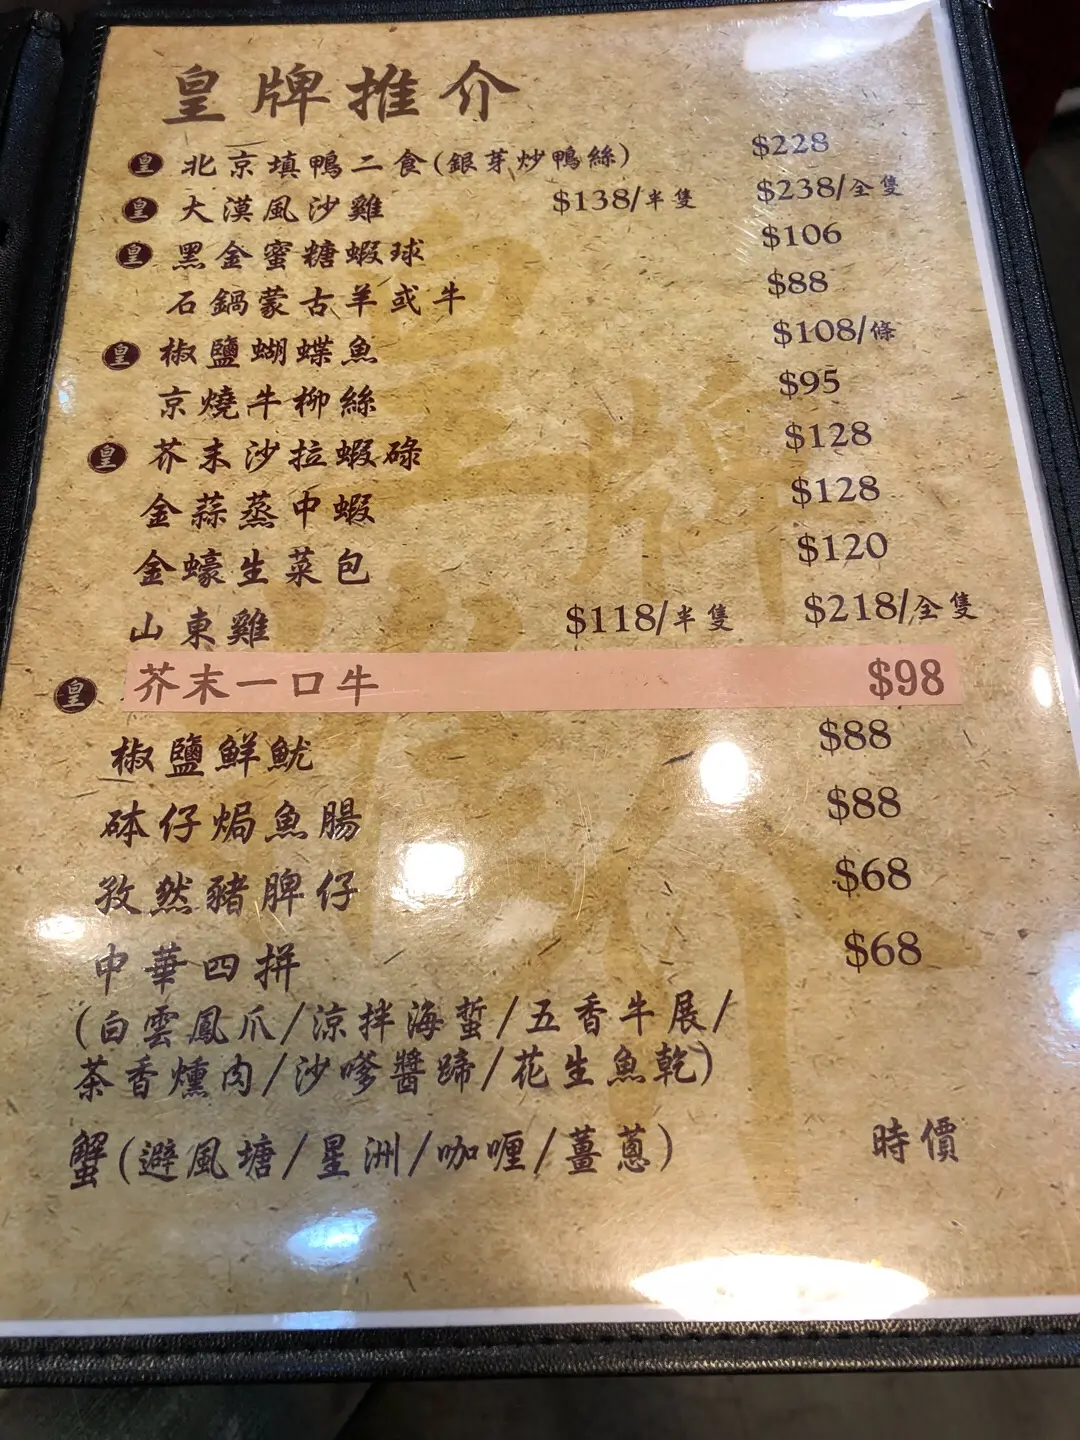 皇牌推介
皇 北京填鴨二食(銀芽炒鴨絲) $228
皇 大漠風沙雞 $138/半隻 $238/全隻
皇 黑金蜜糖蝦球 $106
石鍋蒙古羊或牛 $88
皇 椒鹽蝴蝶魚 $108/條
京燒牛柳絲 $95
皇 芥末沙拉蝦碌 $128
金蒜蒸中蝦 $128
金蠔生菜包 $120
山東雞 $118/半隻 $218/全隻
皇 芥末一口牛 $98
椒鹽鮮魷 $88
砵仔焗魚腸 $88
孜然豬脾仔 $68
中華四拼 $68
(白雲鳳爪/涼拌海蜇/五香牛展/
茶香燻肉/沙嗲醬蹄/花生魚乾)
蟹(避風塘/星洲/咖喱/薑蔥) 時價